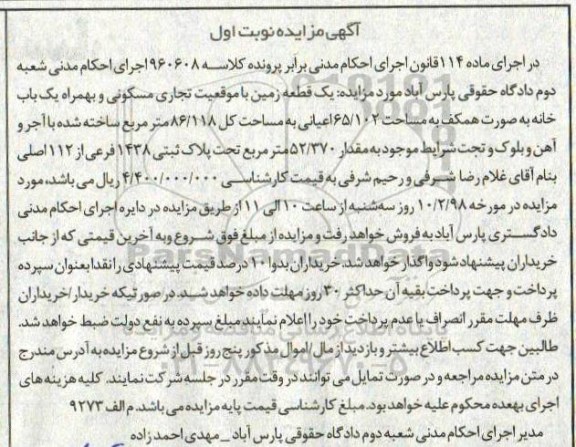 آگهی مزایده نوبت اول
در اجرای ماده ۱۱۴قانون اجرای احکام مدنی برابر پرونده کلاسه ۹۶۰۶۰۸اجرای احکام مدنی شعبه
دوم دادگاه حقوقی پارس آباد مورد مزایده: یک قطعه زمین با موقعیت تجاری مسکونی و بهمراه یک باب
خانه به صورت همکف به مساحت ۶۵/۱۰۲اعیانی به مساحت کل ۸۶/۱۱۸متر مربع ساخته شده با آجر و
آهن و بلوک و تحت شرایط موجود به مقدار ۵۲/۳۷۰متر مربع تحت پلاک ثبتی ۱۴۳۸فرعی از ۱۱۲اصلی
بنام آقای غلام رضا شرفی و رحیم شرفی به قیمت کارشناسی ۴/۴۰۰/۰۰۰/۰۰۰ ریال می باشد، مورد
مزایده در مورخه ۱۰/۲/۹۸ روز سه شنبه از ساعت ۱۰الی ۱۱از طریق مزایده در دایره اجرای احکام مدنی
دادگستری پارس آباد به فروش خواهد رفت و مزایده از مبلغ فوق شروع و به آخرین قیمتی که از جانب
خریداران پیشنهاد شود واگذار خواهد شد. خریداران بدوا۱۰درصد قیمت پیشنهادی را نقدا بعنوان سپرده
پرداخت و جهت پرداخت بقیه آن حداکثر ۳۰روز مهلت داده خواهد شد. در صورتیکه خریدار/خریداران
ظرف مهلت مقرر انصراف یا عدم پرداخت خود را اعلام نمایند مبلغ سپرده به نفع دولت ضبط خواهد شد.
طالبین جهت کسب اطلاع بیشتر و بازدید از مال/اموال مذکور پنج روز قبل از شروع مزایده به آدرس مندرج
در متن مزایده مراجعه و در صورت تمایل می توانند در وقت مقرر در جلسه شرکت نمایند. کلیه هزینه های
اجرای بهعده محکوم علیه خواهد بود. مبلغ کارشناسی قیمت پایه مزایده می باشد. م الف ۹۲۷۳
مدیر اجرای احکام مدنی شعبه دوم دادگاه حقوقی پارس آباد _مهدی احمدزاده